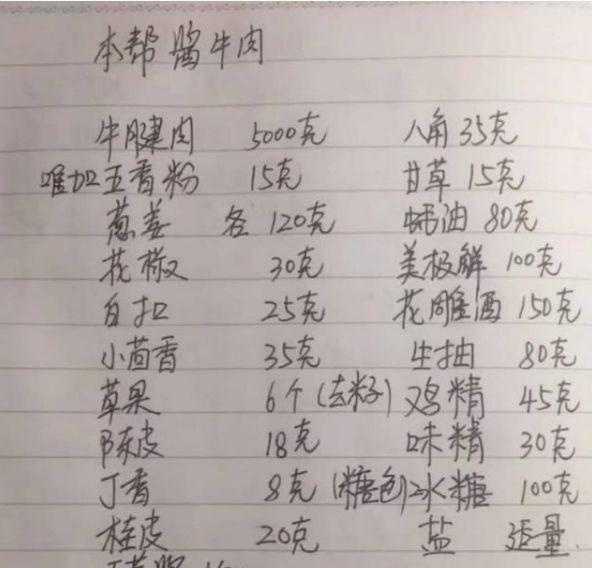 本帮酱牛肉
牛腱肉 5000克 八角 35克
唯加五香粉 15克 甘草 15克
葱姜 各 120克 蚝油 80克
花椒 30克 美极鲜 100克
白扣 25克 花雕酒 150克
小茴香 35克 生抽 80克
草果 6个(去籽) 鸡精 45克
陈皮 18克 味精 30克
丁香 8克 (糖色)冰糖 100克
桂皮 20克 盐 适量